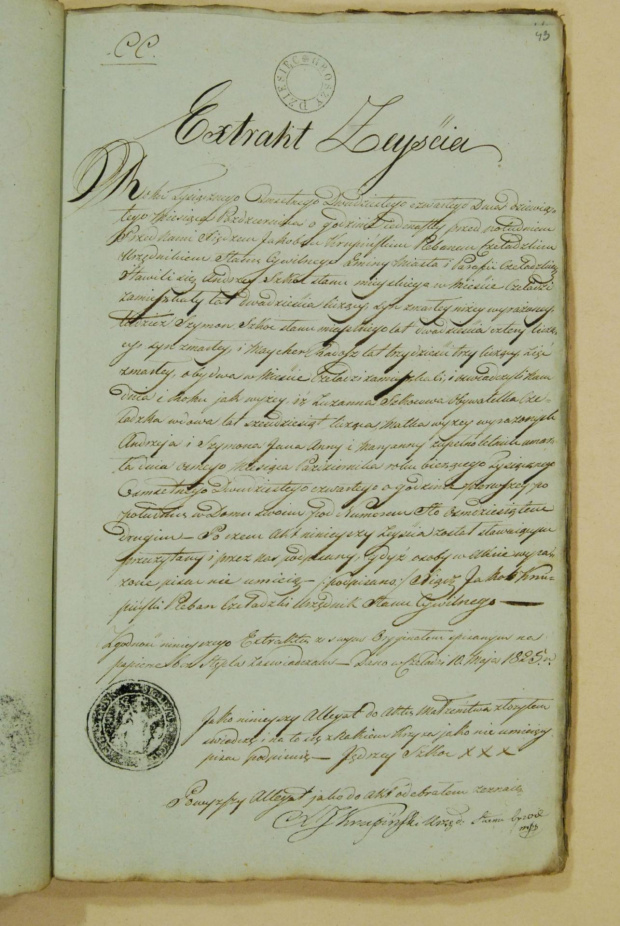 43
C C.
DZIESIĘĆ GROSZY
Extrakt Zeyścia
Roku Tysiącznego Osmsetnego Dwudziestego czwartego Dnia dziewią-
tego Miesiąca Pazdziernika o godzinie iedenastey przed południem
Przed Nami Xiędzem Jakobem Krupińskim Plebanem Czeladzkim
Urzędnikiem Stanu Cywilnego Gminy Miasta i Parafii Czeladzkiey
Stawili się Andrzey Szkoc stanu mieyskiego w Mieście Czeladzi
zamieszkały lat dwadzieścia liczący syn zmarłey niżey wyrażoney
tudzież Szymon Szkoc stanu mieyskiego lat dwadzieścia cztery liczą-
cy syn zmarłey, i Maycher lat trzydzieści trzy liczący Zięć
zmarłey, obydwa w Mieście Czeladzi zamieszkali, i oświadczyli Nam
dnia i Roku jak wyżey iż Zuzanna Szkocowa Obywatelka Cze-
ladzka wdowa lat sześćdziesiąt licząca Matka wyżey wyrażonych
Andrzeja i Szymona Jana Anny i Maryanny zupełnoletnich umar-
ła dnia osmego Miesiąca Pazdziernika roku bieżącego Tysiącznego
Osmsetnego Dwudziestego czwartego o godzinie pierwszey po
południu w Domu swoim pod Numerem Sto Osmdziesiątem
drugim — Po czem Akt ninieyszy Zeyścia został stawaiącym
przeczytany i przez nas podpisany, Gdyż osoby w Akcie wyra-
żone pisać nie umieią — (podpisano) Xiądz Jakob Kru-
piński Pleban Czeladzki Urzędnik Stanu Cywilnego —
Zgodność ninieyszego Extraktu z swym Oryginałem spisanym na
papierze bez Stępla zaświadczam — Dano w Czeladzi 10. Maja 1825. r.
Jako ninieyszy Allegat do Aktu Małżeństwa złożyłem
i na to się znakiem Krzyża jako nie umieiący
pisać podpisuię — Jędrzey Szkoc X X X
Powyższy Allegat jako do Akt odebrałem zeznaię
X J Krupiński Urzęd: Stanu Cywil
mp